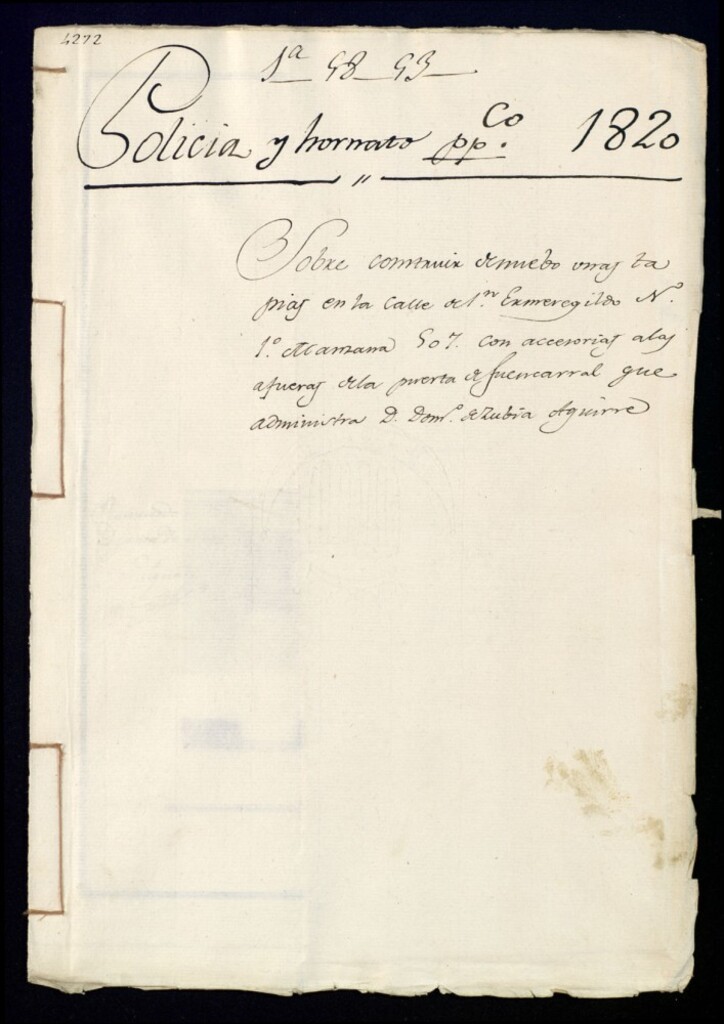 4272
1ª 58 53
Policia y hornato ppCo. 1820
Sobre construir de nuebo unas ta
pias en la calle de Sn. Ermeregildo Nº.
1º. Manzana 507. con accesorias a las
afueras de la puerta de fuencarral que
administra D. Domº. de Zubia Aguirre